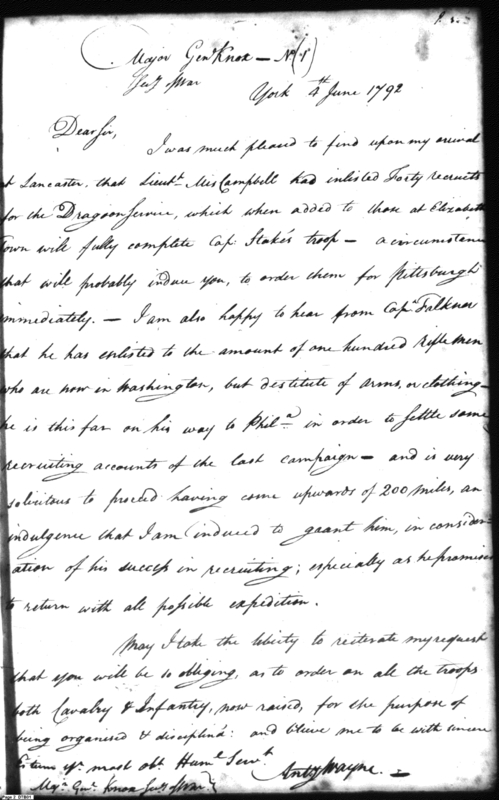 Major Genl. Knox — No. (1)
Secy of War
York 4th June 1792
Dear Sir,
I was much pleased to find upon my arrival
at Lancaster, that Lieut. Mis Campbell had inlisted Forty recruits
for the Dragoon Service, which when added to those at Elizabeth
Town will fully complete Cap: Stake's troop — a circumstance
that will probably induce you, to order them for Pittsburgh
immediately. — I am also happy to hear from Capn. Falkner
that he has enlisted to the amount of one hundred rifle men
who are now in Washington, but destitute of arms, or clothing —
he is thus far on his way to Phila. in order to settle some
recruiting accounts of the last campaign — and is very
solicitous to proceed having come upwards of 200 miles, an
indulgence that I am induced to grant him, in consider-
ation of his success in recruiting; especially as he promises
to return with all possible expedition.
May I take the liberty to reiterate my request
that you will be so obliging, as to order on all the troops
both Cavalry & Infantry, now raised, for the purpose of
being organised & disciplin'd: and believe me to be with sincere
Esteem yr. most obt. Huml. Servt.
Anty Wayne. —
Majr. Genl. Knox Secy of War